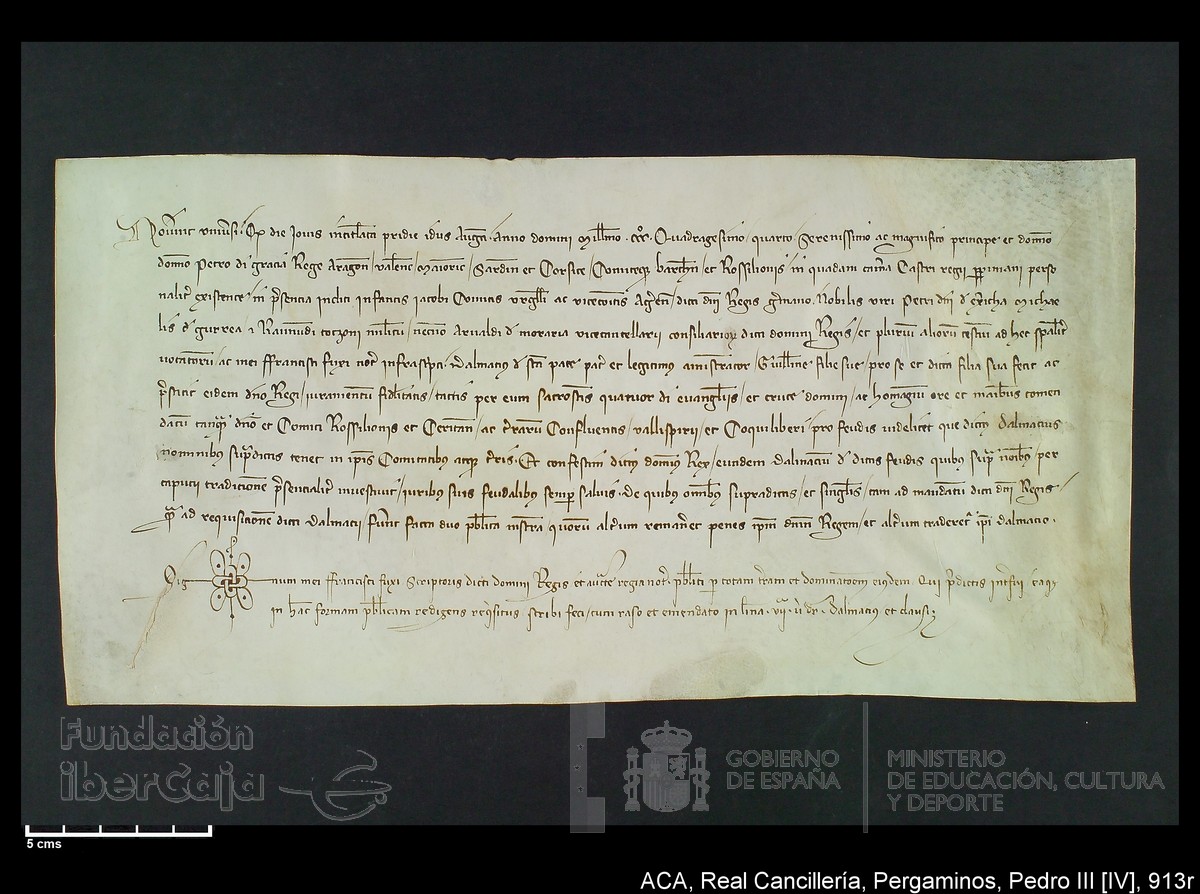 Noverint universi. Qd die Jovis intitulati pridie idus Augusti. Anno domini Millmo. CCC. Quadragesimo. quarto. Serenissimo ac magnifico principe et domno
domno Petro di gracia Rege Aragon / Valenc / Maioric / Sardin et Corsice / Comiteqz barchn / et Rossilionis in quadam camera Castri regii ppiniani perso
naliter existente / in psencia incliti infantis Jacobi Comitis Urgelli ac vicecomitis Ageren / dicti dni Regis germano. Nobilis viri Petri dni d exericha Michae
lis d gurrea et Raimundi militu / necno Arnaldi d moraria vicecancellarii consiliarioz dicti domini Regis / et pluriu alioru testiu ad hec spaliter
vocatoru / ac mei ffrancisci fuxi not infrascpti. Dalmacius d pace pater et legitimus aministrator / Guillme filie sue / pro se et dicta filia sua fecit ac
pstitit eidem dno Regi / iuramentu fidelitatis / tactis per eum sacrosctis quatuor di evangeliis / et cruce domini / ac homagiu ore et manibus comen
datu tanqm dno et Comiti Rossilionis et Ceritan / ac terraru Confluentis / Vallispirii / et Coquiliberi / pro feudis videlicet que dictus Dalmacius
nominibus supradictis tenet in ipis Comitatibus atqz terris. Et confestim dictus domnus Rex / eundem Dalmaciu d dictis feudis quibus supra noibus / per
caputii tradicione psencialiter investivit / iuribus suis feudalibus semper salvis. De quibus omnibus supradictis / et singulis / tam ad mandatu dicti dni Regis
qm ad requisitione dicti Dalmacii / fuerunt facta duo publica instra / quoru alterum remaneret penes ipm dnm Regem / et alterum traderetur ipi Dalmacio.
Sig num mei ffrancisci fuxi Scriptoris dicti domini Regis et aucte regia not. publici p totam terram et dominacoem eiusdem. Qui pdictis interfui eaqz
in hac formam publicam redigens requisitus scribi feci / cum raso et emendato in linea. VII. u dr. Dalmacius et clausi.
Fundación
iberCaja
GOBIERNO
DE ESPAÑA
MINISTERIO
DE EDUCACIÓN, CULTURA
Y DEPORTE
5 cms
ACA, Real Cancillería, Pergaminos, Pedro III [IV], 913r